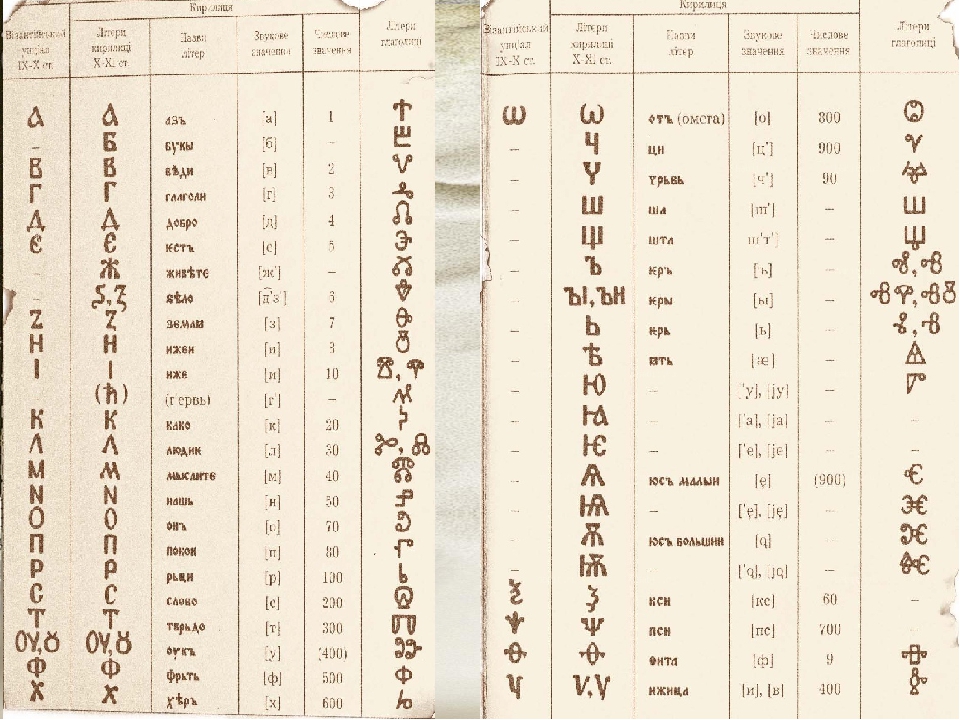 Кирилиця
Візантійський унціал IX-X ст. Літери кирилиці X-XI ст. Назви літер Звукове значення Числове значення Літери глаголиці
А А азъ [а] 1 Ⰰ
– Б букы [б] – Ⰱ
В В вѣди [в] 2 Ⰲ
Г Г глаголи [г] 3 Ⰳ
Д Д добро [д] 4 Ⰴ
Є Є ѥстъ [е] 5 Ⰵ
– Ж живѣте [ж'] – Ⰶ
– Ѕ, Ꙁ ѕѣло [д͡'з'] 3 Ⰷ
Z Ꙁ земли [з] 7 Ⰸ
Н Н ижеи [и] 3 Ⰹ
І І иже [и] 10 Ⰺ, Ⰻ
(ћ) (г ервь) [г'] – Ⰼ
К К како [к] 20 Ⰽ
Л Л людиѥ [л] 30 Ⰾ
М М мыслите [м] 40 Ⰿ
N N нашь [н] 50 Ⱀ
О О онъ [о] 70 Ⱁ
П П покои [п] 80 Ⱂ
Р Р рьци [р] 100 Ⱃ
С С слово [с] 200 Ⱄ
Т Т тврьдо [т] 300 Ⱅ
ОУ, Ȣ ОУ, Ȣ оукъ [у] (400) Ⱆ
Ф Ф фрьтъ [ф] 500 Ⱇ
Х Х хѣръ [х] 600 Ⱈ
Кирилиця
Візантійський унціал IX-X ст. Літери кирилиці X-XI ст. Назви літер Звукове значення Числове значення Літери глаголиці
Ѡ Ѡ отъ (омега) [о] 800 Ⱉ
– Ч ци [ц'] 900 Ⱌ
– Ҁ чрьвь [ч'] 90 Ⱍ
– Ш ша [ш'] – Ⱎ
– Щ шта [ш'т'] – Ⱋ
– Ъ ѥръ [ъ] –
– ЪІ, ЪН ѥры [ы] –
– Ь ѥрь [ь] –
– Ѣ ꙗть [æ] – Ⱑ
– Ю – ['у], [jу] – Ⱓ
– Ꙗ – ['а], [ja] – –
– Ѥ – ['е], [је] – –
– Ѧ юсъ малыи [ę] (900) Ⱔ
– Ѩ – ['ę], [ję] – Ⱗ
– Ѫ юсъ большии [ǫ] – Ⱘ
– Ѭ ['ǫ], [jǫ] – Ⱙ
Ѯ Ѯ кси [кс] 60 –
Ѱ Ѱ пси [пс] 700 –
Ѳ Ѳ фита [ф] 9 Ⱚ
Ч Ѵ, Ѵ ижица [и], [в] 400 Ⱛ